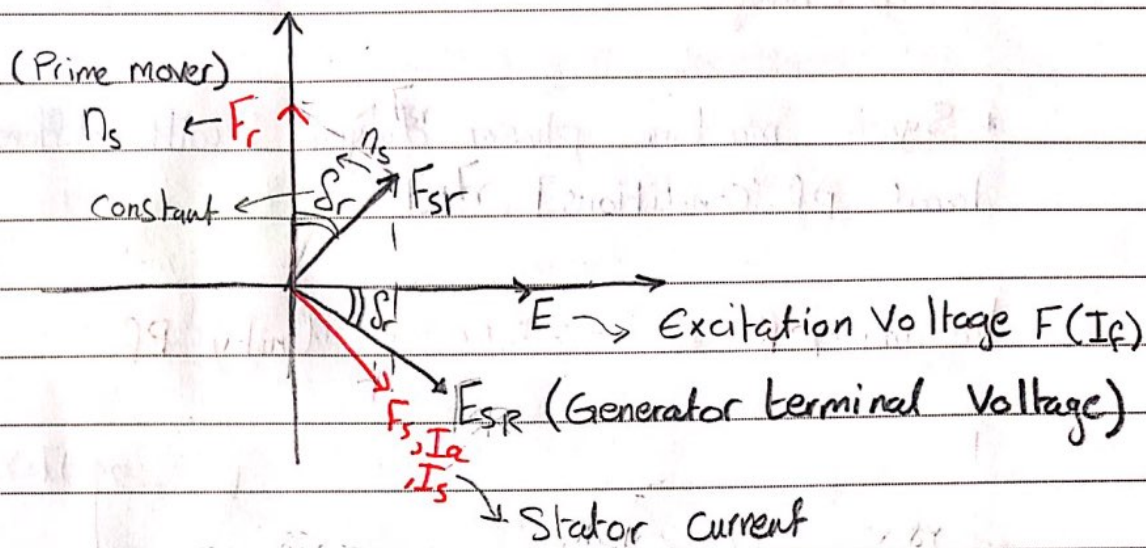 (Prime mover)
n_s ← F_r
n_s
constant ← δ_r F_sr
δ_r E → Excitation Voltage F(I_f)
E_SR (Generator terminal Voltage)
F_s, I_a
, I_s
→ Stator Current